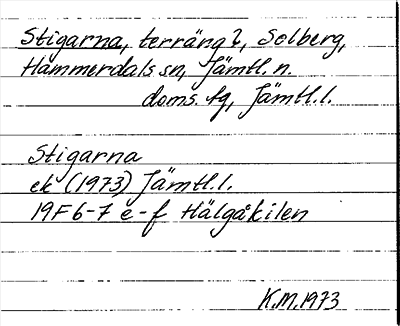 Stigarna, terräng?, Solberg,
Hammerdals sn, Jämtl. n.
doms. fg, Jämtl. l.
Stigarna
ek (1973) Jämtl. l.
19F 6-7 e-f Hälgåkilen
K.M. 1973